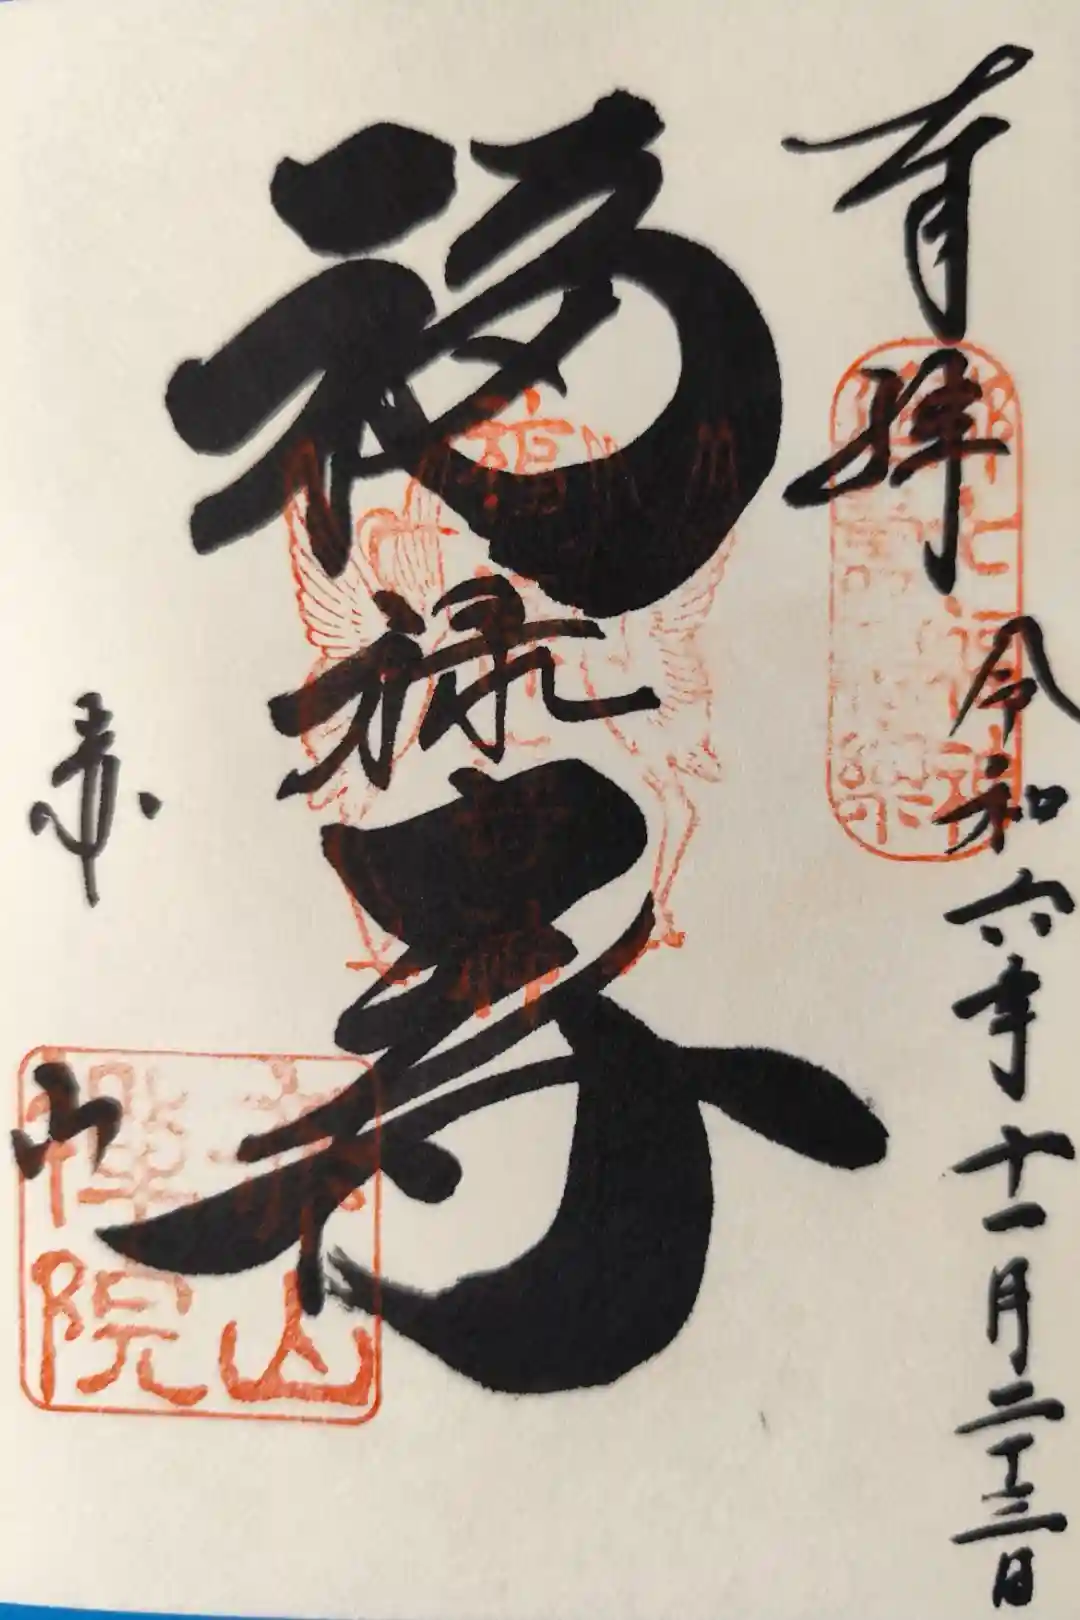 奉拝
令和六年十一月二十三日
福禄寿
赤山
赤山
禅院